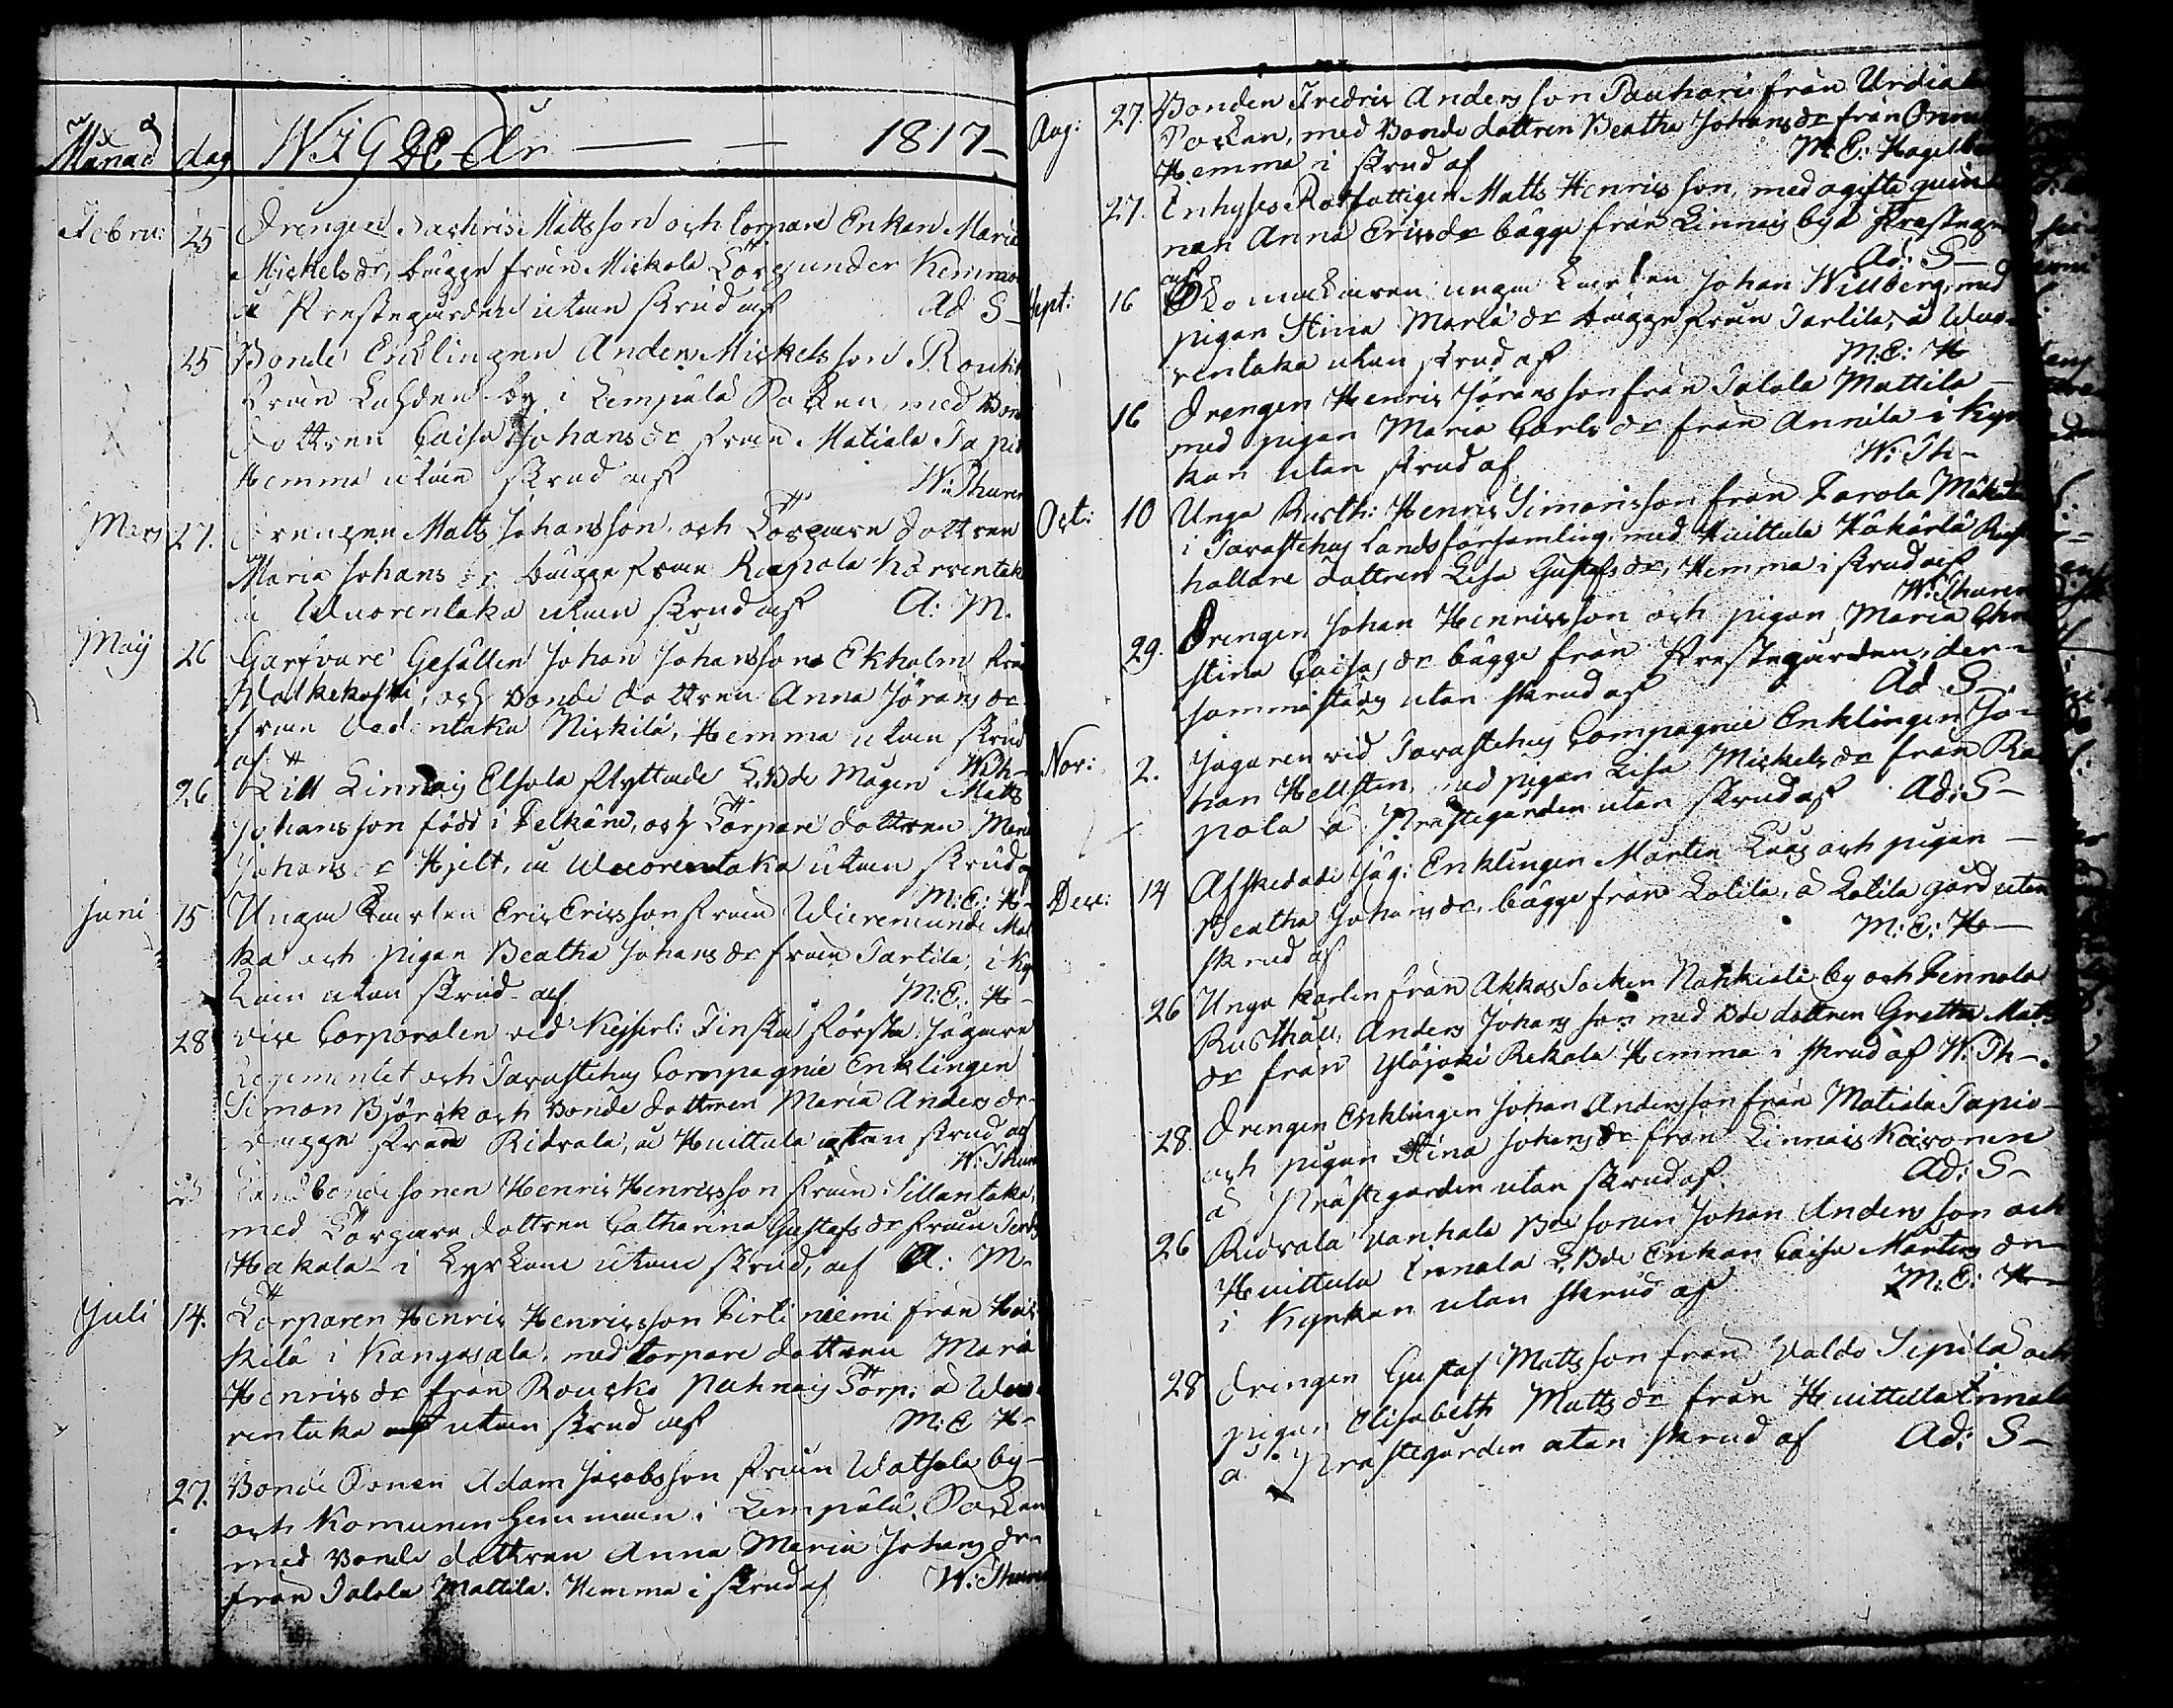 Månad dag WIGDE År — — 1817
Febru: 25 Drengen Zachris Mattsson och torpare Enkan Maria
Mickels dr, bägge från Mickola Torp under Kemmo
å Prestegården utan skrud af Ad S
25 Bonde Enklingen Anders Mickelsson
från by i Lempälä Socken, med Bonde
dottren Caisa Johans dr från Matiala Tapio
Hemma utan skrud af W: Thuren
Mars 27. Drengen Matts Johansson, och Torpare dottren
Maria Johans dr bägge från Rapola
i Wuorentaka utan skrud af A: M.
Maij 26 Garfvare Gesällen Johan Johansson Ekholm från
Walkekoski, och Bonde dottren Anna Jörans dr
från Uodentaka Nickilä, Hemma utan skrud
af W: Th-
26 Till Linnais Elsola flyttade L:Bde Mågen Matts
Johansson född i Pelkäne, och Torpare dottren Maria
Johans dr Hjelt, i Wuorentaka utan skrud af
M: E: H-
Juni 15 Unga Karlen Eric Ericsson från Wieremunde
ka och pigan Beatha Johans dr från Tartila, i Kyr
kan utan skrud af M: E: H-
28 Vice Corporalen vid Kejserl: Finska första Jägare
Regementet och Tavastehus Compagnie Enklingen
Simon Björck och Bonde dottren Maria Anders dr
bägge från Ridvala, å Huittula utan skrud af
W: Thuren
Landbonde sonen Henric Henricsson från Sillantaka,
med Torpare dottren Catharina Gustafs dr från
Hakala i Kyrkan utan skrud, af A: M-
Juli 14. Torparen Henric Henricsson Pirtiniemi från
kilä i Kangasala, med torpare dottren Maria
Henrics dr från Roucko Torp: å Wuo
rentaka utan skrud af M: E H-
27. Bonde Sonen Adam Jacobsson från Watsela by
och Komunen hemman i Lempälä Socken
med Bonde dottren Anna Maria Johans dr
från Jalola Mattila. Hemma i skrud af W: Thuren
Aug: 27. Bonden Fredric Andersson Pauhari från Urdiala
Socken, med Bonde dottren Beatha Johans dr från
Hemma i skrud af M: E: Hagelberg
27. Enhyses Rotfattigen Matts Henricsson, med ogifte quin
nan Anna Erics dr bägge från Linnais by å Prestegn
af Ad: S-
Sept: 16 unga Karlen Johan Willberg, med
pigan Stina Maria dr bägge från Tarlila, å Wuo-
rentaka utan skrud af M: E: H
16 Drengen Henric Jöransson från Jalola Mattila
med pigan Maria Carls dr från Annila i Kyr
kan utan skrud af W: Th-
Oct: 10 Unga Rusth: Henric Simonsson från Parola
i Tavastehus Landsförsamling, med Huittula Kähärlä Rust
hallare dottren Lisa Gustafs dr, Hemma i skrud af
W: Thuren
29. Drengen Johan Henricsson och pigan Maria Chri
stina Caisas dr bägge från Prestegården, der-
sammastädes utan skrud af Ad S-
Nov: 2. Jägaren vid Tavastehus Compagnie Enklingen Jo-
han Hellsten, med pigan Lisa Mickels dr från Ra
pola å Prästegården utan skrud af Ad: S-
Dec: 14 Afskedade Jäg: Enklingen Mårten Kaas och pigan
Beatha Johans dr, bägge från Lotila, å Lotila gård utan
skrud af M: E: H-
26 Unga Karlen från Akkas Socken Nahkiala by och Pennola
Rusthåll, Anders Johansson med Bde dottren Gretha Matts
dr från Yläjoki Rekola Hemma i skrud af W: Th-
28 Drengen Enklingen Johan Andersson från Matiala Tapio-
och pigan Stina Johans dr från Linnais Kaivonen
å Prästegården utan skrud af Ad: S-
26 Ridvala Vanhala Bde sonen Johan Andersson och
Huittula Ennala L:Bde Enkan Caisa Mårtens dr
i Kyrkan utan skrud af M: E: H-
28 Drengen Gustaf Mattsson från Valdo Sipilä och
pigan Elisabeth Matts dr från Huittula Ennala
å Prästegården utan skrud af Ad: S-